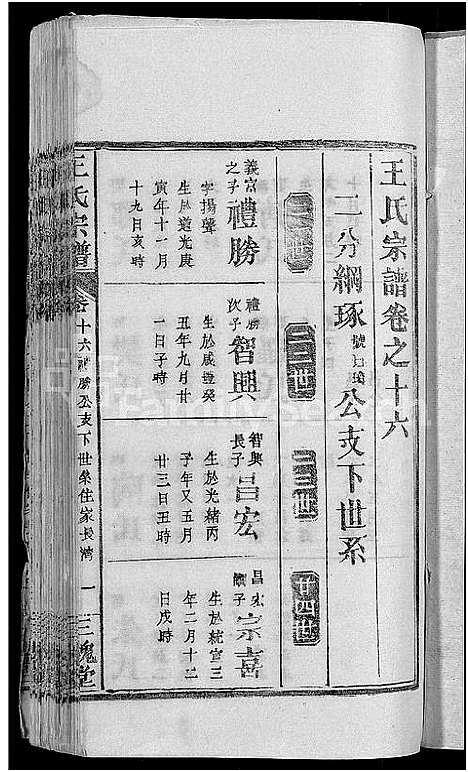 王氏宗譜卷之十六
二分綱琢
公支下世系
二二世
二三世
廿四世
義富之子
禮勝
字揚聲
生於道光庚
寅年十一月
十九日亥時
禮勝次子
智興
生於咸豐癸
丑年九月廿
一日子時
智興長子
昌宏
生於光緒丙
子年又五月
廿三日丑時
昌宏
子
宗喜
生於統宣三
年二月十二
日戌時
王氏宗譜
卷十六
禮勝公支下世系住家長灣
一
三槐堂